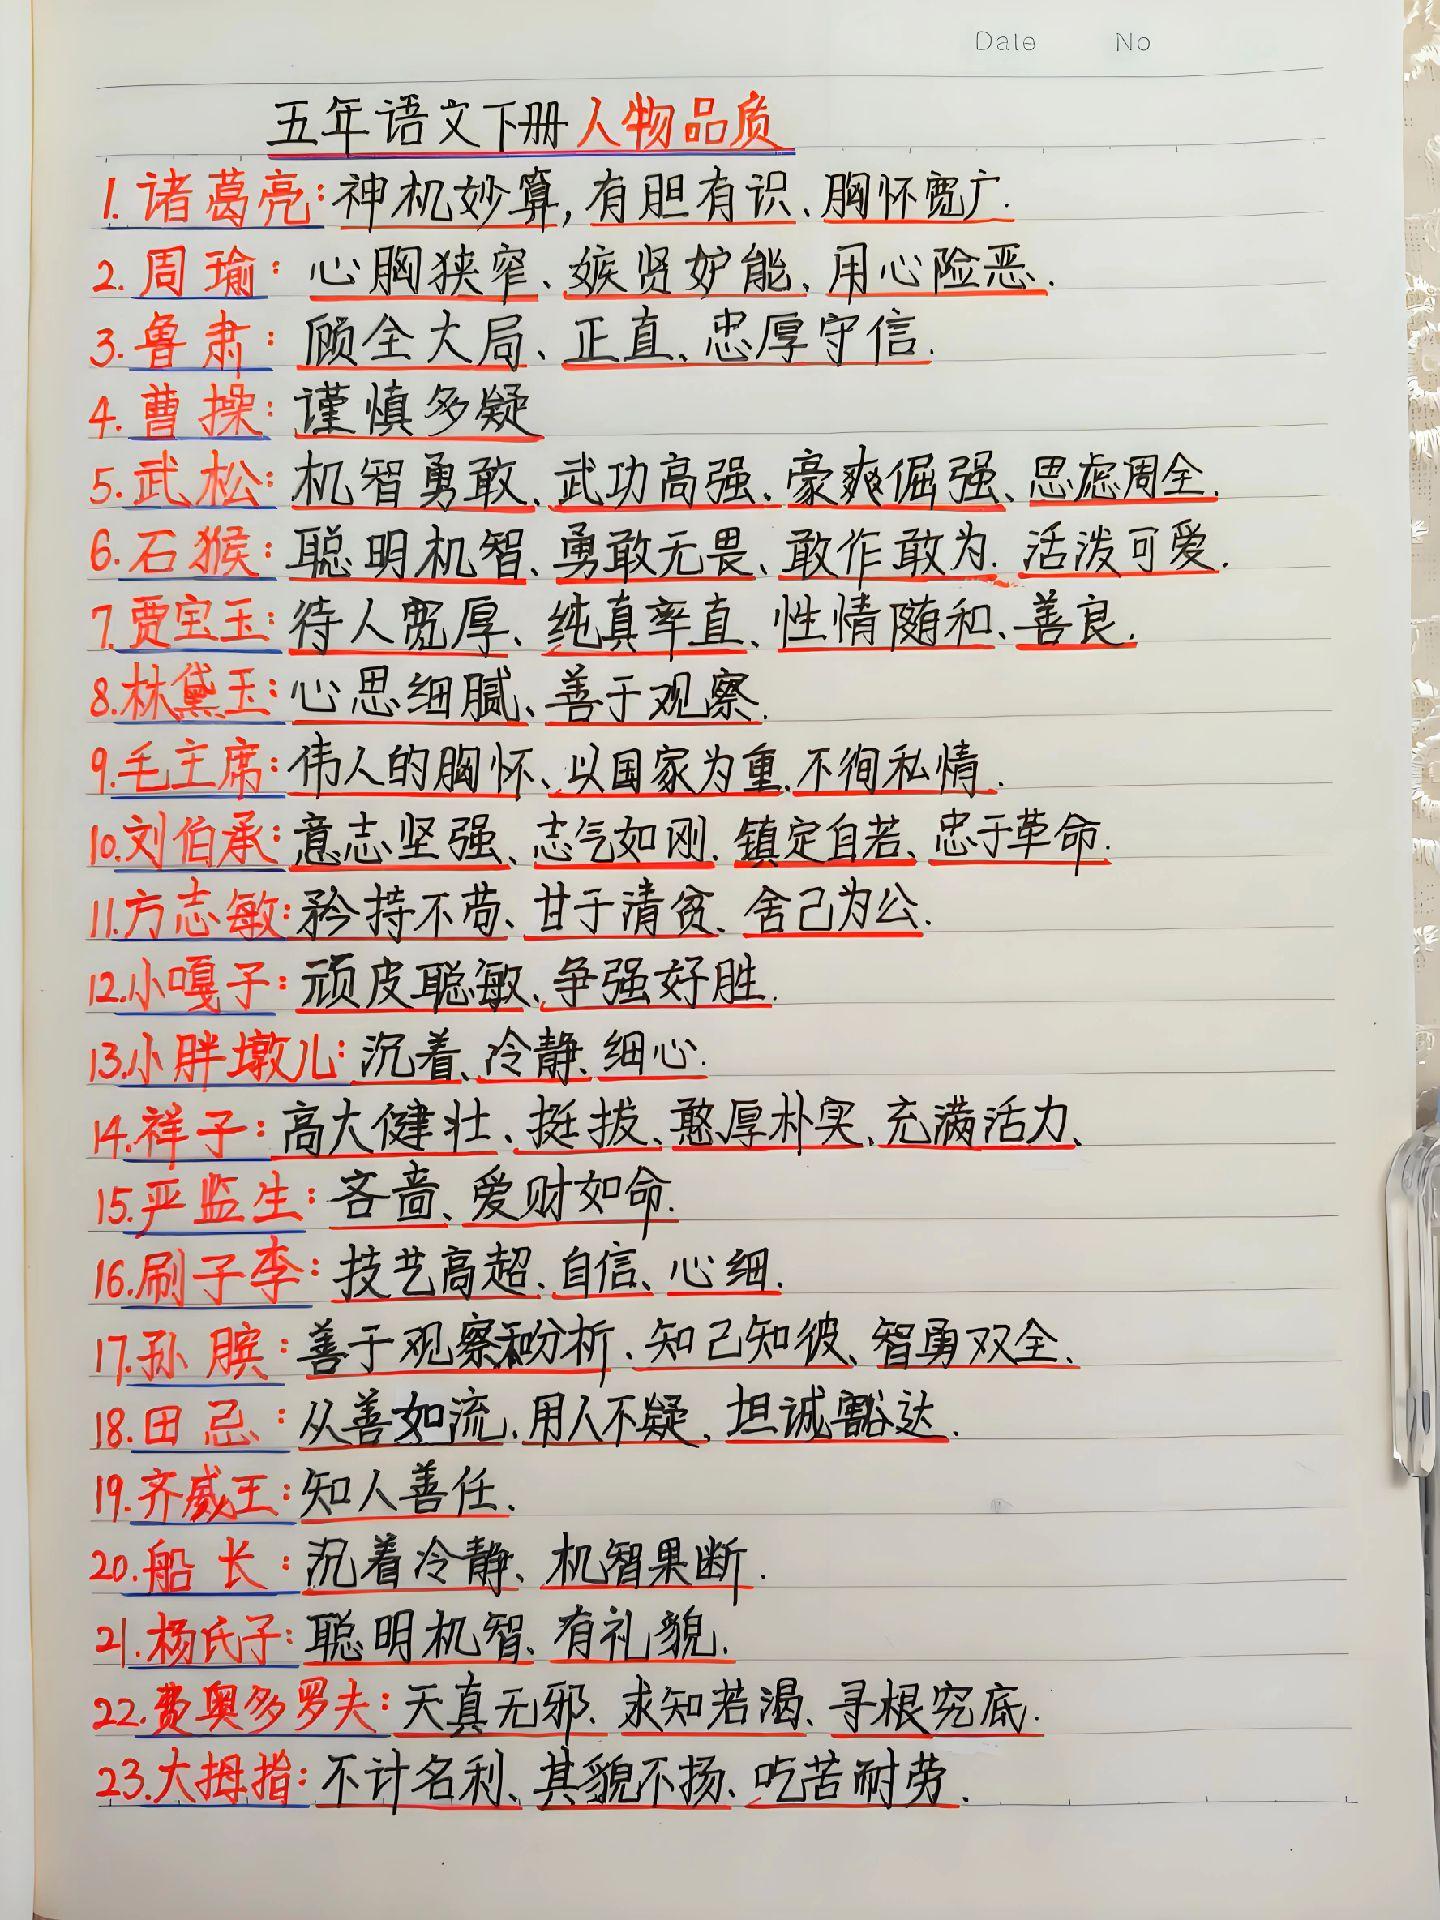 Date No
五年语文下册人物品质
1.诸葛亮:神机妙算,有胆有识、胸怀宽广.
2.周瑜:心胸狭窄、嫉贤妒能、用心险恶.
3.鲁肃:顾全大局、正直、忠厚守信.
4.曹操:谨慎多疑
5.武松:机智勇敢、武功高强、豪爽倔强、思虑周全.
6.石猴:聪明机智、勇敢无畏、敢作敢为、活泼可爱.
7.贾宝玉:待人宽厚、纯真率直、性情随和、善良.
8.林黛玉:心思细腻、善于观察.
9.毛主席:伟人的胸怀、以国家为重.不徇私情.
10.刘伯承:意志坚强、志气如刚.镇定自若、忠于革命.
11.方志敏:矜持不苟、甘于清贫、舍己为公.
12.小嘎子:顽皮聪敏、争强好胜.
13.小胖墩儿:沉着、冷静、细心.
14.祥子:高大健壮、挺拔、憨厚朴实、充满活力、
15.严监生:吝啬、爱财如命.
16.刷子李:技艺高超、自信、心细.
17.孙膑:善于观察和分析、知己知彼、智勇双全、
18.田忌:从善如流、用人不疑、坦诚豁达.
19.齐威王:知人善任.
20.船长:沉着冷静、机智果断.
21.杨氏子:聪明机智、有礼貌.
22.费奥多罗夫:天真无邪、求知若渴、寻根究底.
23.大拇指:不计名利、其貌不扬、吃苦耐劳.